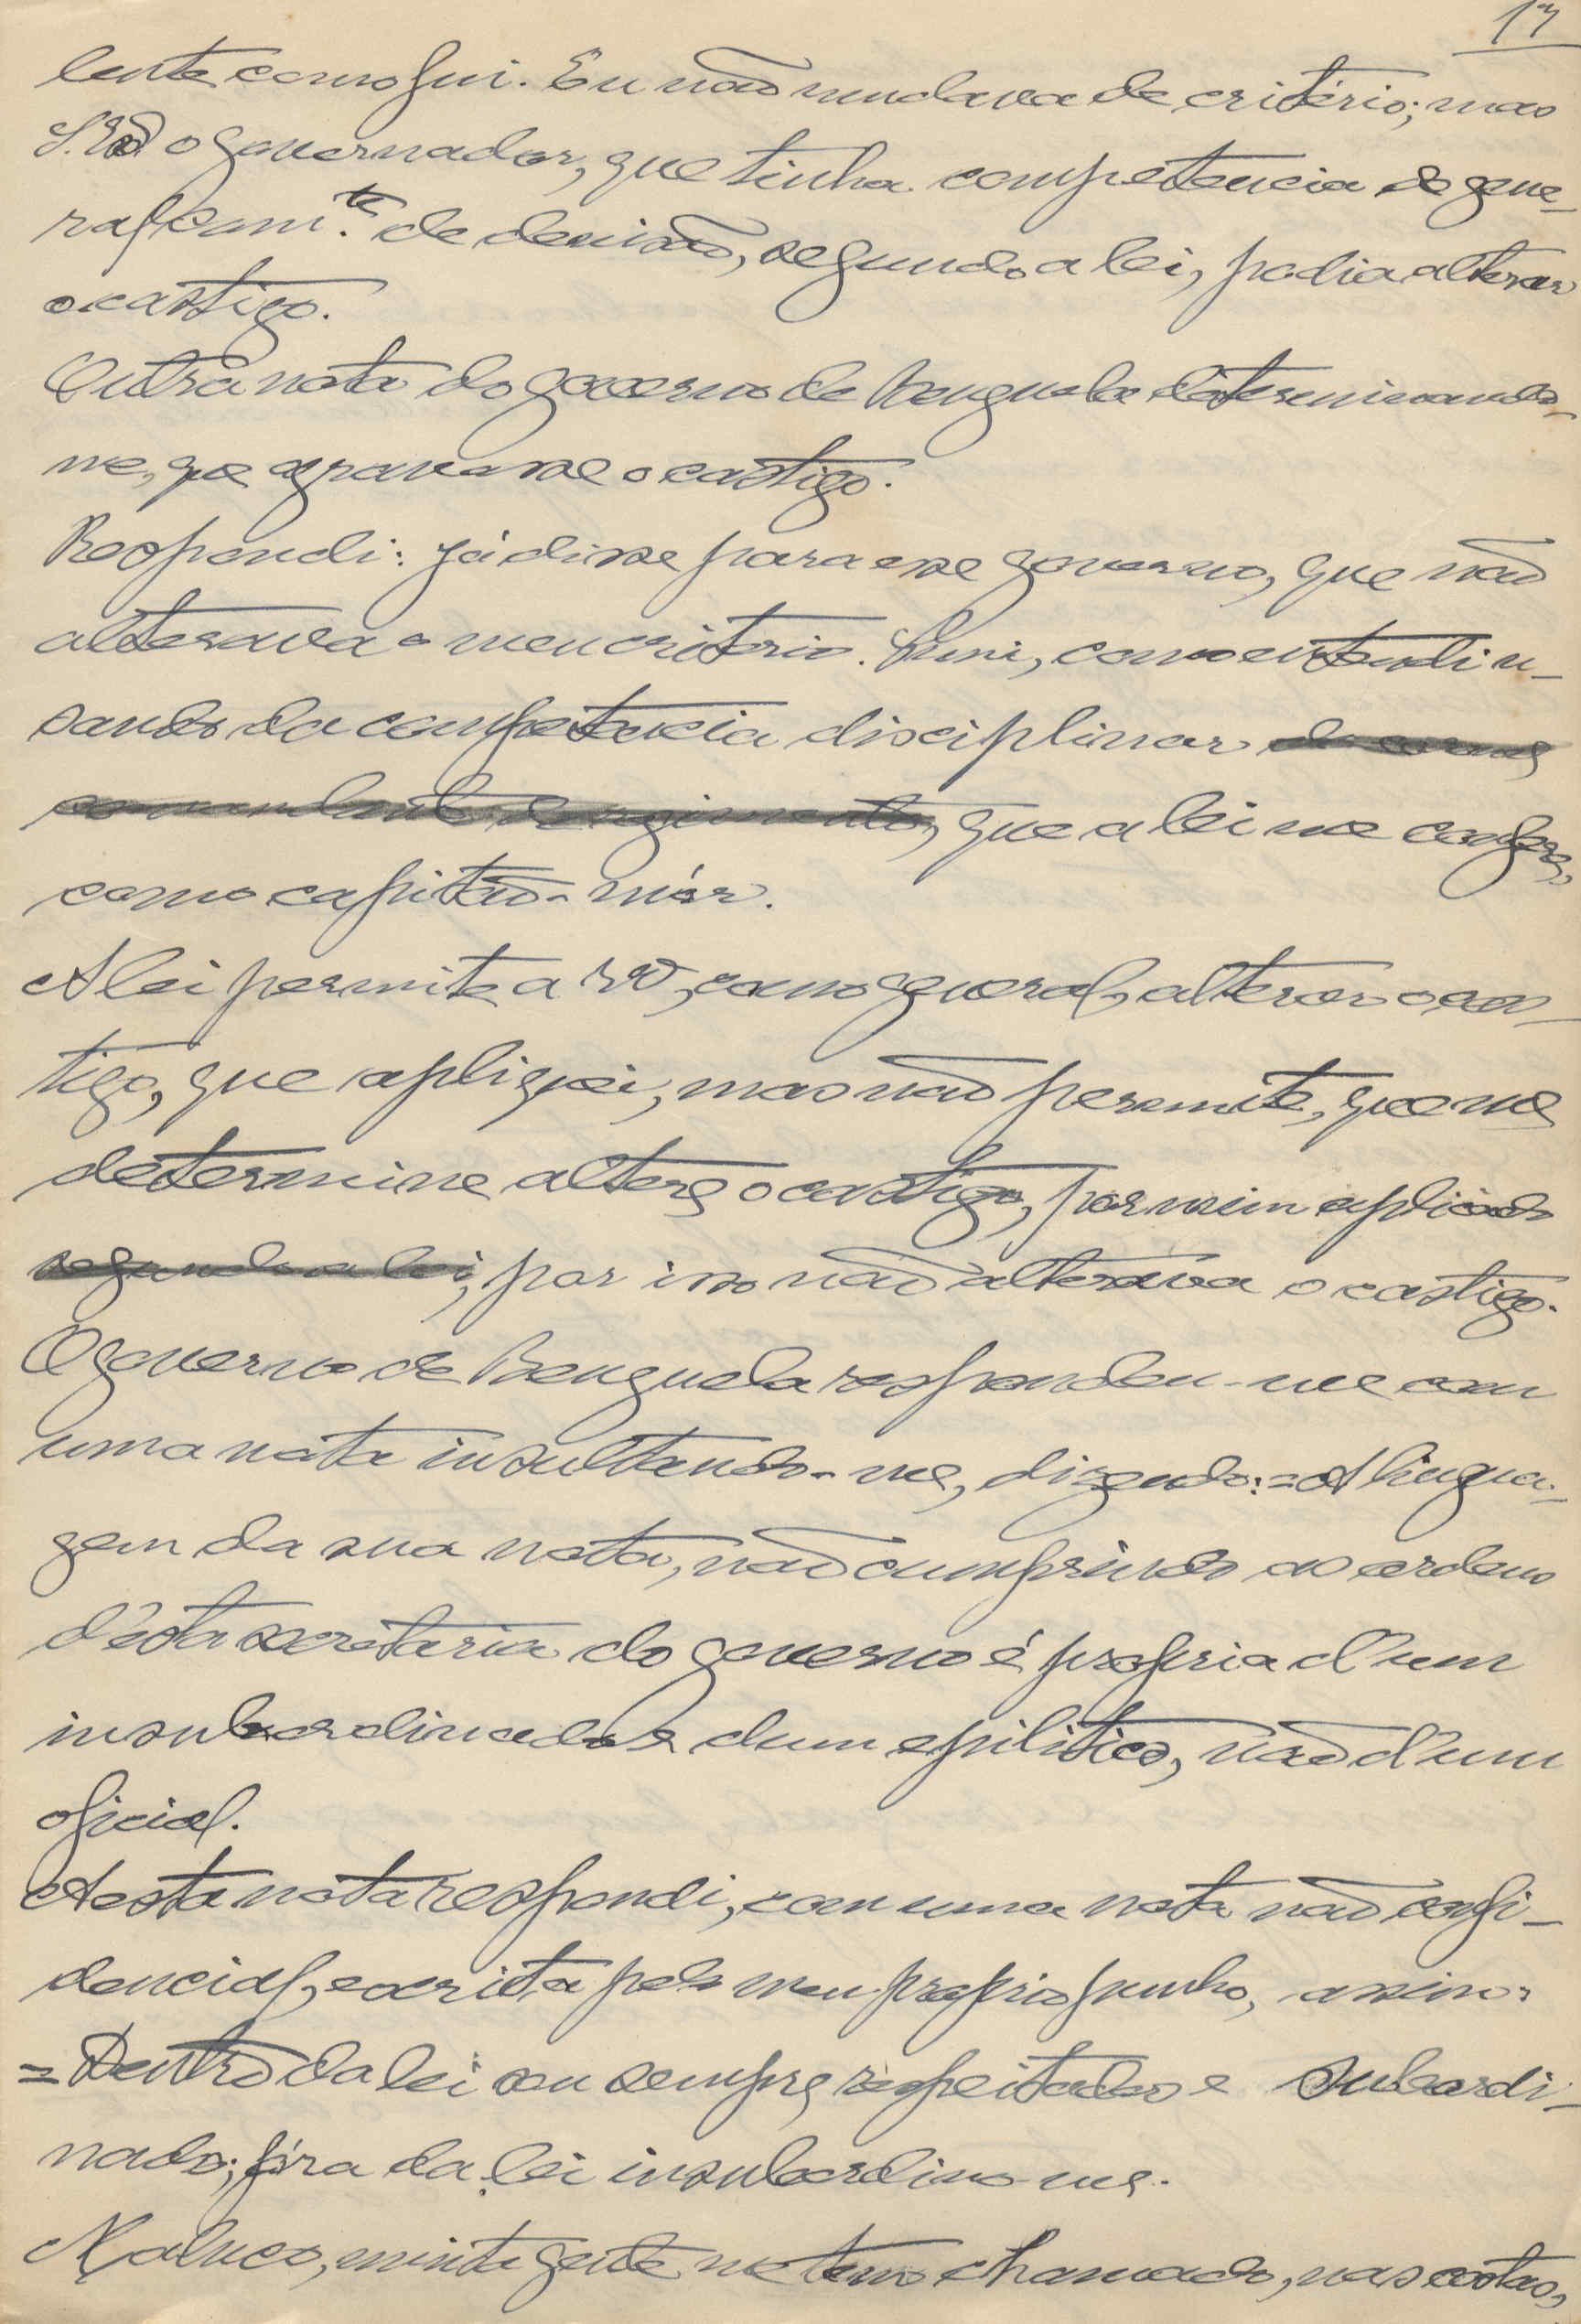 17
lente como fui. Eu não mudava de critério; mas
o governador, que tinha competencia de gene-
ral com.te de devisão, segundo a lei, podia alterar
o castigo.
Outra nota do governo de Benguela determinando-
me, que agravasse o castigo.
Respondi: já disse para esse governo, que não
alterava o meu criterio. Puni, como entendi u-
sando da competencia disciplinar de corone
comandante de regimento, que a lei me confere,
como capitão-mór.
A lei permite a V. Ex.ª, como general, alterar o cas-
tigo, que apliquei, mas não permite, que me
determine altere o castigo, por mim aplicado
segundo a lei, por isso não alterava o castigo.
O governo de Benguela respondeu-me com
uma nota insultando-me, dizendo: = A lingua-
gem da sua nota, não cumprindo as ordens
d'esta secretaria do governo é propria d'um
insubordinado e dum epilitico, não d'um
oficial.
A esta nota respondi, com uma nota não confi-
dencial, escrita pelo meu proprio punho, assim:
= Dentro da lei sou sempre respeitador e subordi-
nado; fóra da lei insubordino-me.
Maluco, muita gente me tem chamado, nas costas,